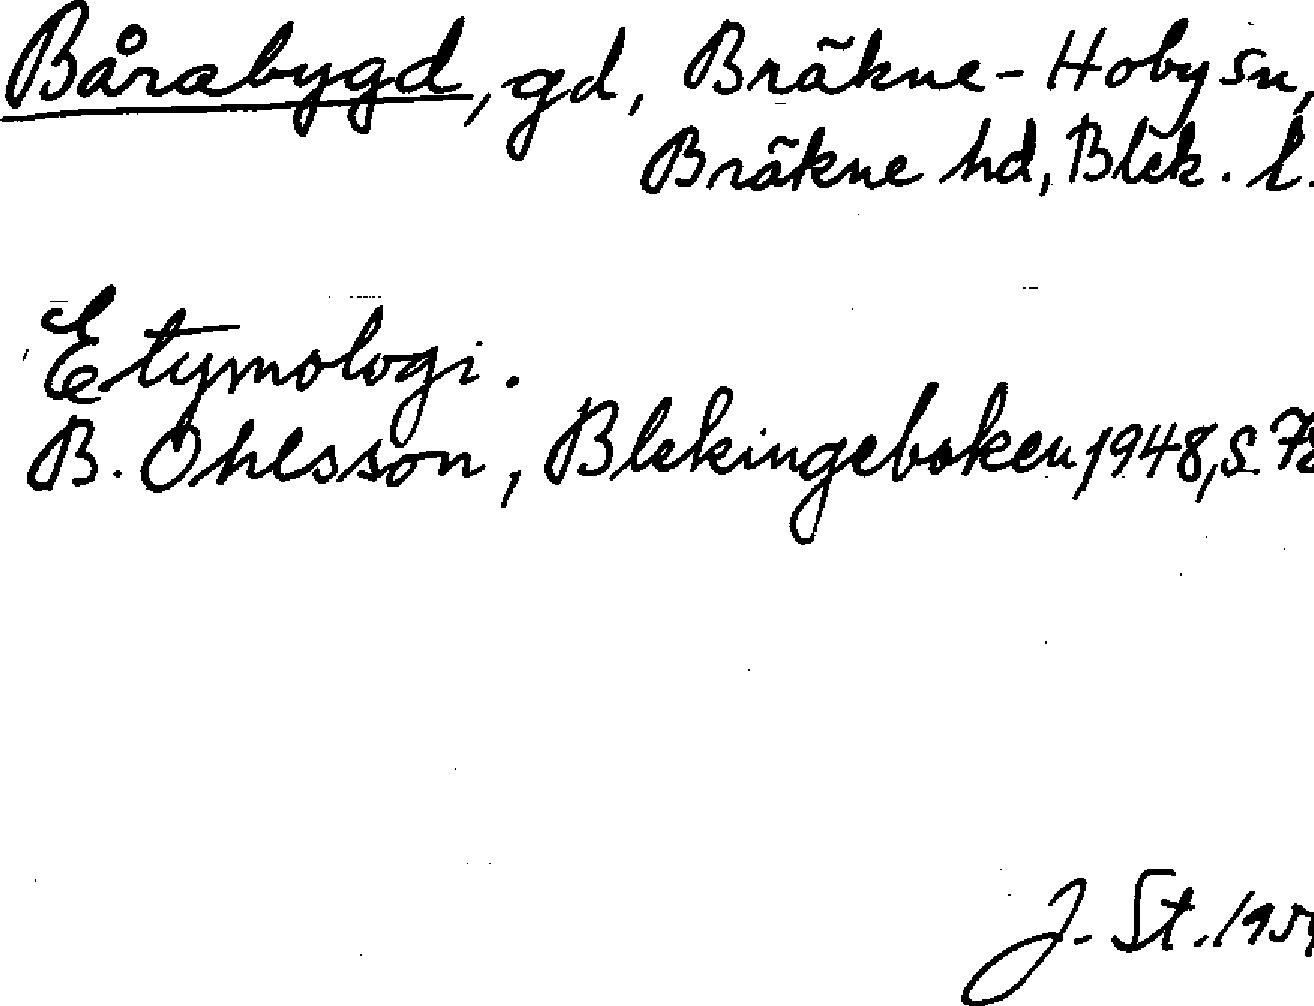 Bårabygd, gd, Bräkne-Hoby sn,
Bräkne hd, Blek. l.
Etymologi.
B. Ohlsson, Blekingeboken 1948, s. 78
J. St.